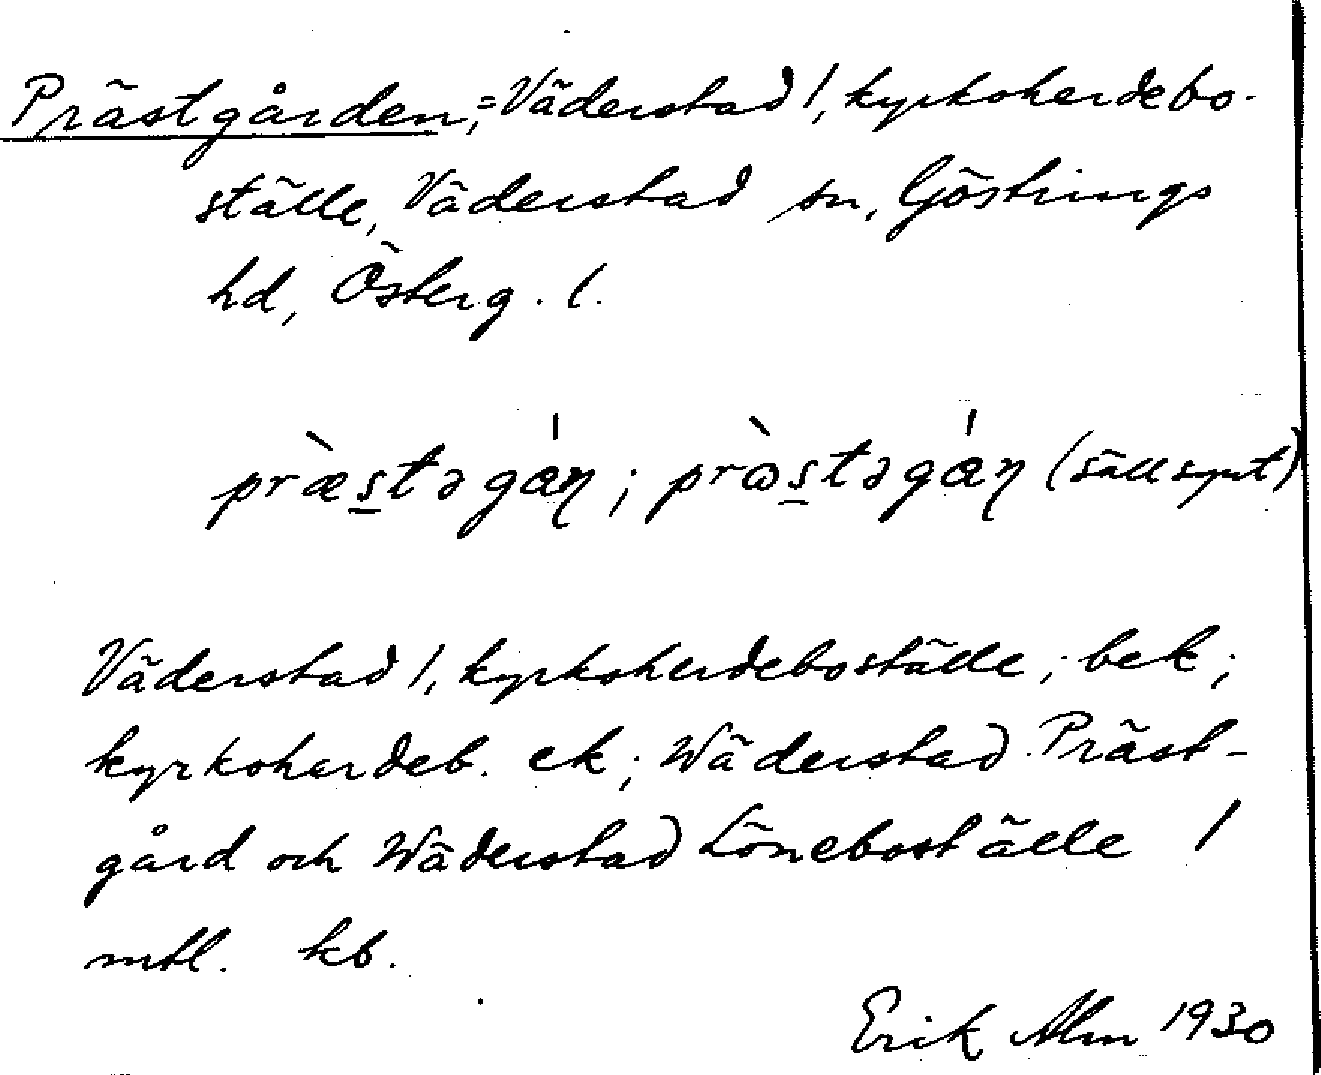 Prästgården, = Väderstad 1, kyrkoherdebo-
ställe, Väderstad sn, Göstrings
hd, Österg. l.
præ̀stəgǽṇ; prɷ̀stəgǽṇ (sällsynt)
Väderstad 1, kyrkoherdeboställe, bek;
kyrkoherdeb. ek; Wäderstad Präst-
gård och Wäderstad Löneboställe 1
mtl. kb.
Erik Alm 1930